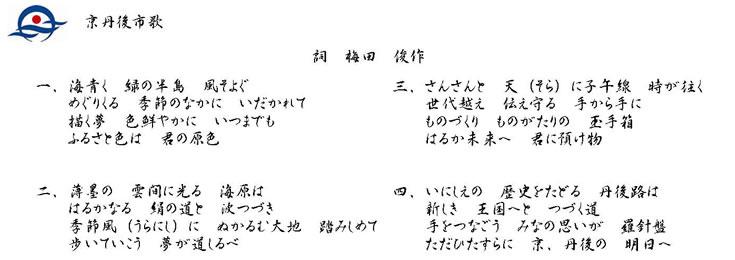 京丹後市歌
詞 梅田 俊作
一、海青く 緑の半島 風そよぐ
めぐりくる 季節のなかに いだかれて
描く夢 色鮮やかに いつまでも
ふるさと色は 君の原色
二、薄墨の 雲間に光る 海原は
はるかなる 絹の道と 波つづき
季節風(うらにし)に ぬかるむ大地 踏みしめて
歩いていこう 夢が道しるべ
三、さんさんと 天(そら)に子午線 時が往く
世代越え 伝え守る 手から手に
ものづくり ものがたりの 玉手箱
はるか未来へ 君に預け物
四、いにしえの 歴史をたどる 丹後路は
新しき 王国へと つづく道
手をつなごう みなの思いが 羅針盤
ただひたすらに 京、丹後の 明日へ